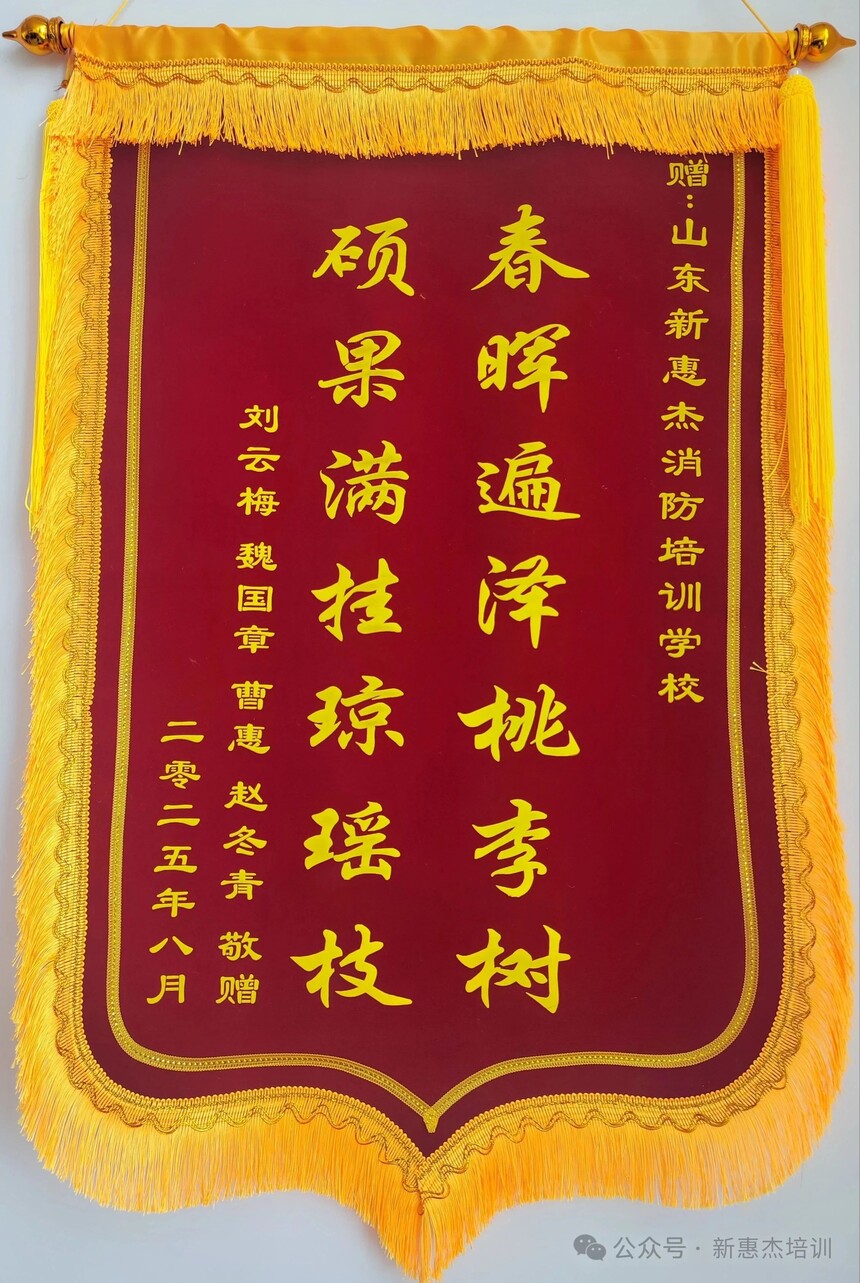 赠：山东新惠杰消防培训学校
春晖遍泽桃李树
硕果满挂琼瑶枝
刘云梅 魏国章 曹惠 赵冬青 敬赠
二零二五年八月
公众号·新惠杰培训